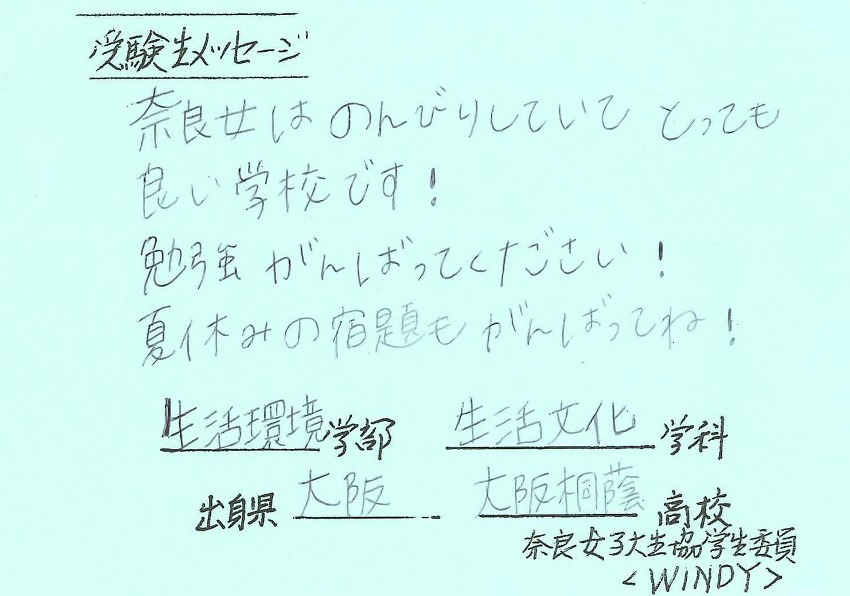 受験生メッセージ
奈良女は のんびりしていて とっても
良い学校です!
勉強 がんばってください!
夏休みの宿題もがんばってね!
生活環境学部 生活文化 学科
出身県 大阪 大阪桐蔭 高校
奈良女子大生協学生委員
<WiNDY>